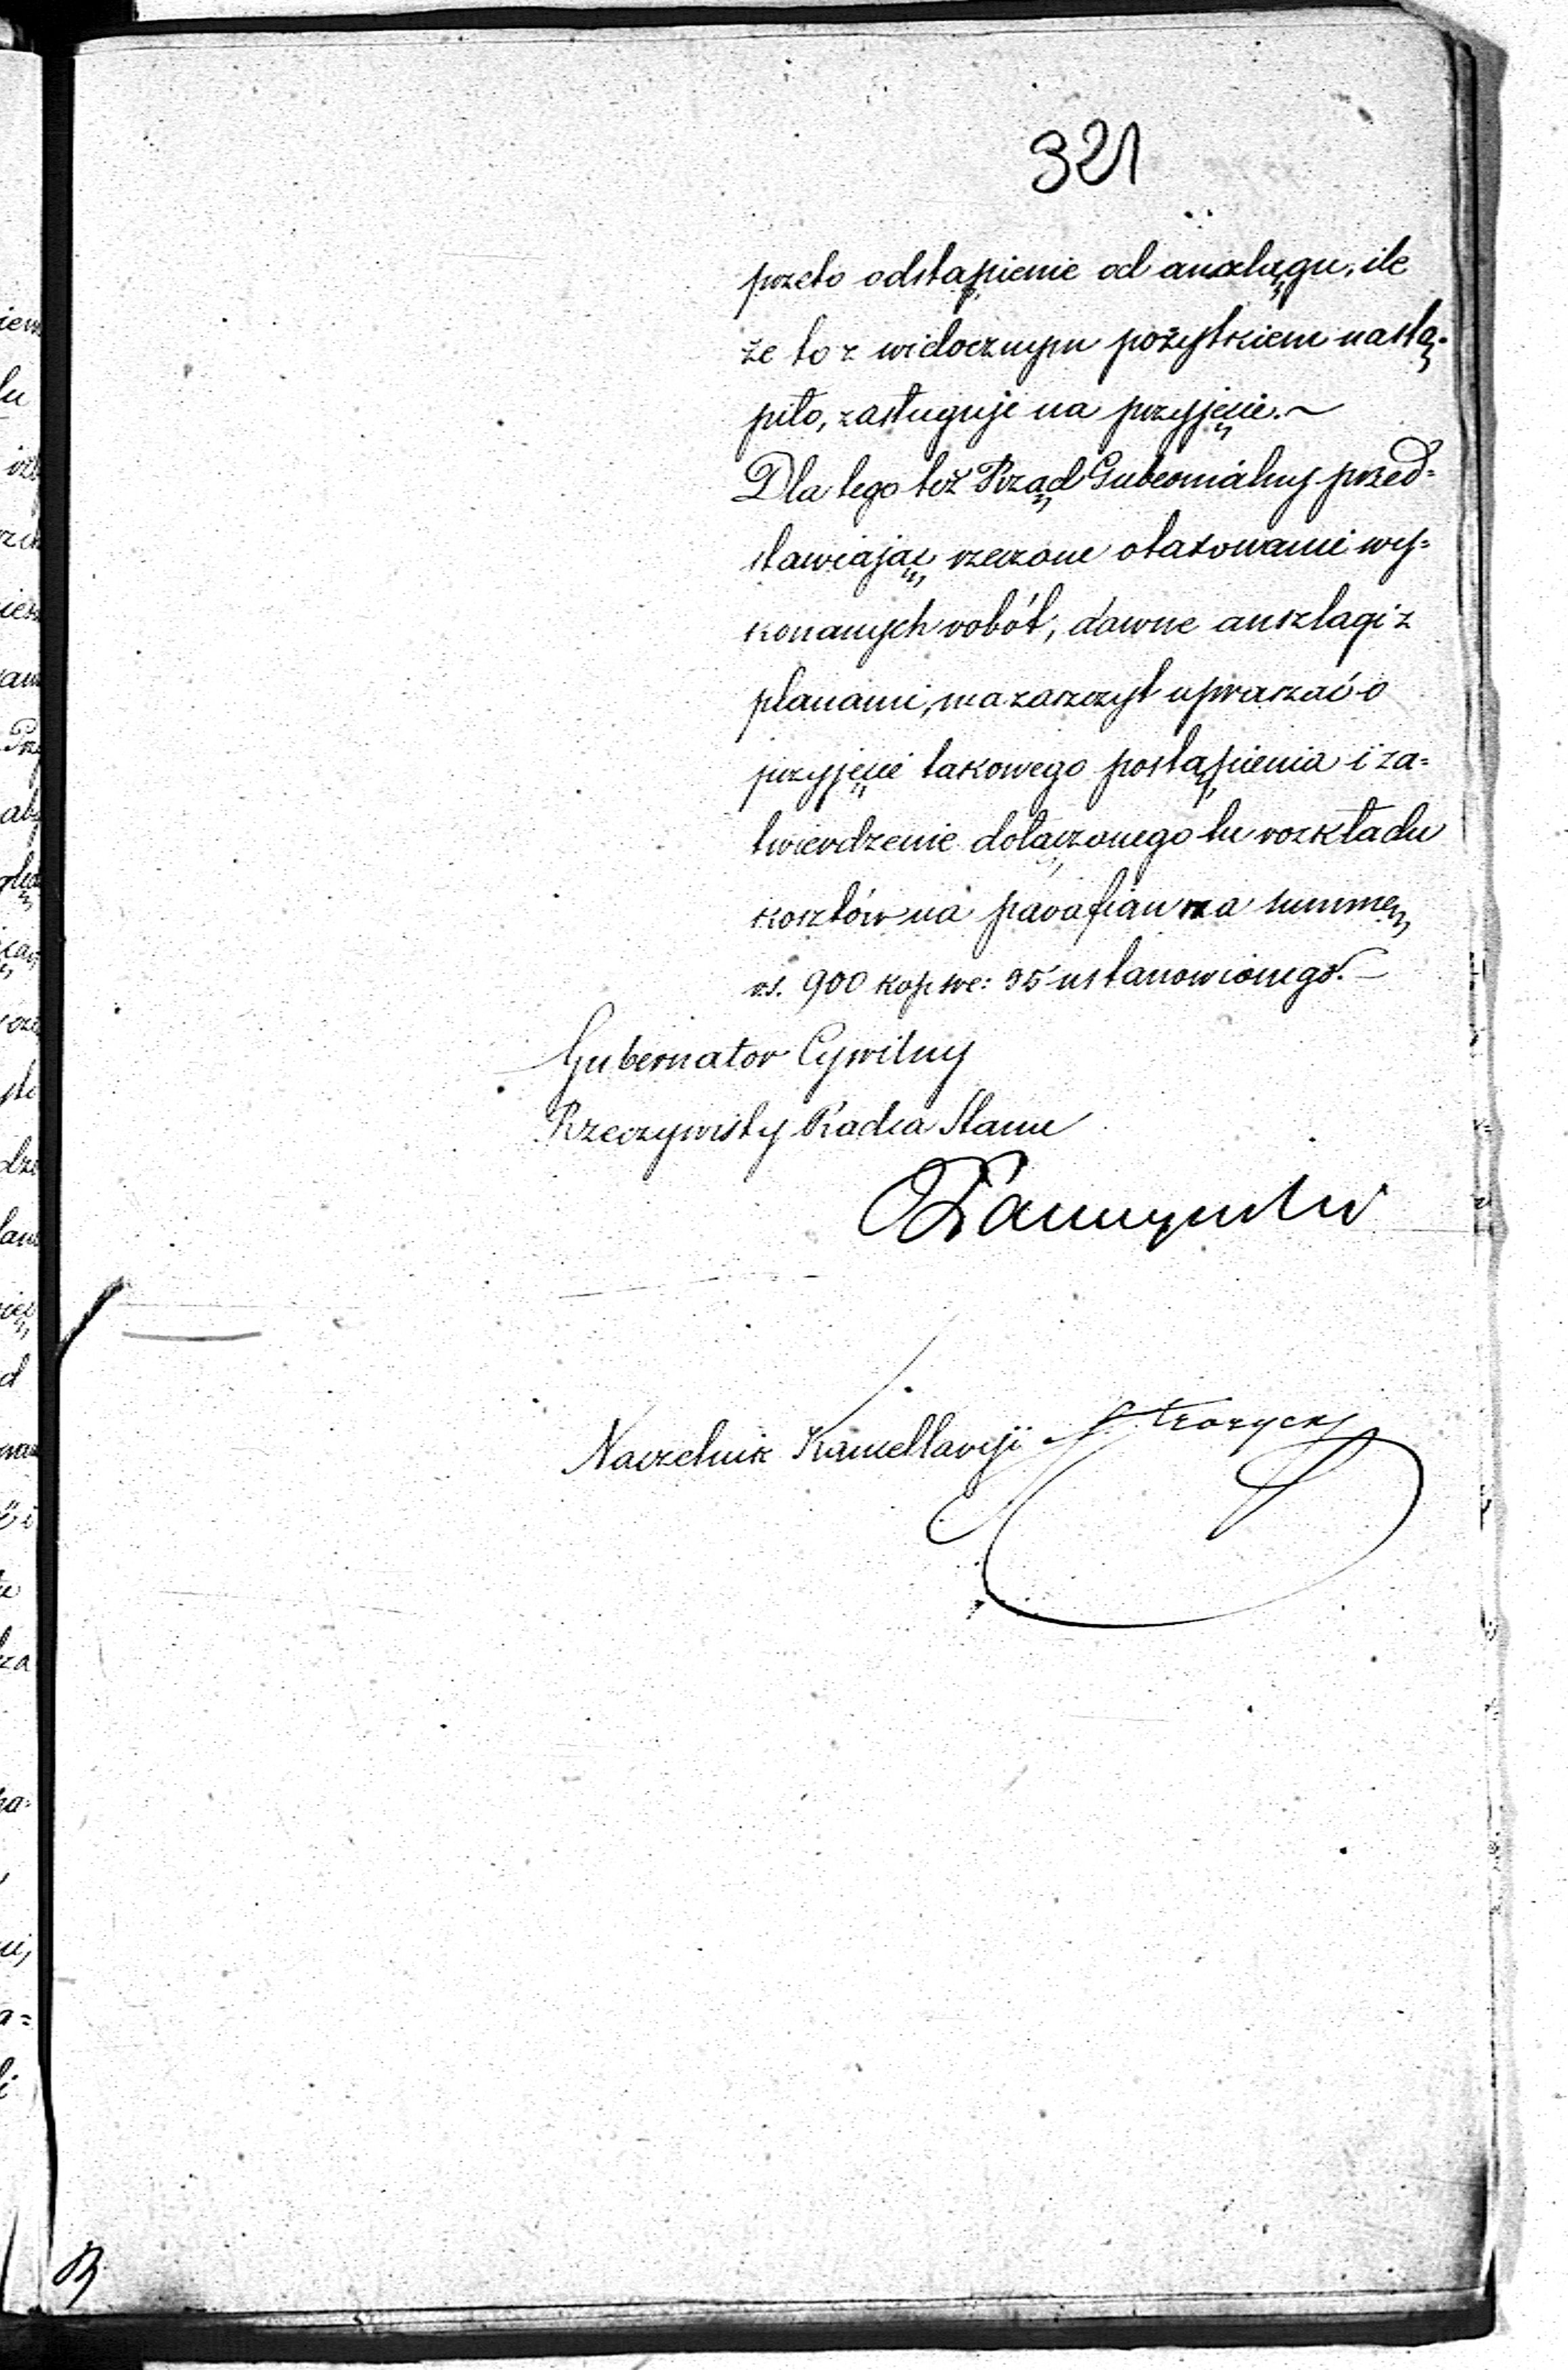 321
przeto odstąpienie od anszlągu, ile
że to z widocznym pożytkiem nastą-
piło, zasługuje na przyjęcie. ~
Dla tego też Rząd Gubernialny przed=
stawiając rzeczone otaxowanie wy=
konanych robót, dawne anszlagi z
planami, ma zaszczyt upraszać o
przyjęcie takowego postąpienia i za=
twierdzenie dołączonego tu rozkładu
kosztów na parafian na summę
rs. 900 kop sre: 35 ustanowionego. —
Gubernator Cywilny
Rzeczywisty Radca Stanu
Naczelnik Kancellaryi